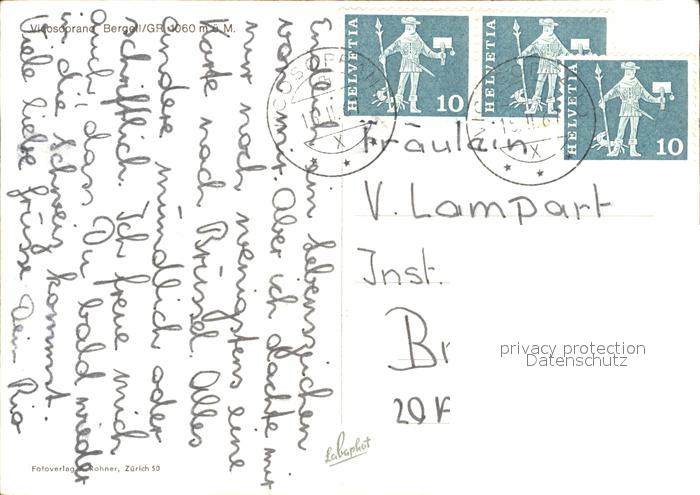 Vicosoprano Bergell/GR 1060 m ü. M.
Endlich ein Lebenszeichen
von mir. Aber ich dachte mir
nur noch wenigstens eine
Karte nach Brüssel. Alles
andere mündlich oder
schriftlich. Ich freue mich
auch, dass Du bald wieder
in die Schweiz kommst.
Viele liebe Grüße Dein Rio
Fotoverlag Rohner, Zürich 50
Labaphot
HELVETIA 10
HELVETIA
HELVETIA 10
VICOSOPRANO
X
X
Fräulein
V. Lampart
Inst.
Br
20
privacy protection
Datenschutz